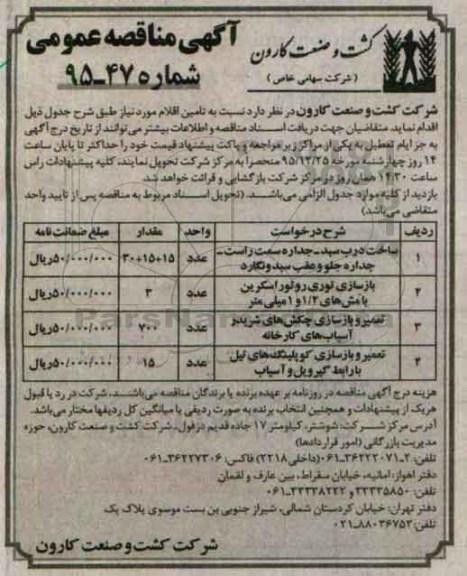 آگهی مناقصه عمومی
شماره ۴۷-۹۵
کشت و صنعت کارون
(شرکت سهامی خاص)
شرکت کشت و صنعت کارون در نظر دارد نسبت به تامین اقلام مورد نیاز طبق شرح جدول ذیل
اقدام نماید، متقاضیان جهت دریافت اسناد مناقصه و اطلاعات بیشتر می‌توانند از تاریخ درج آگهی
به جز ایام تعطیل به یکی از مراکز زیر مراجعه و پاکت پیشنهاد قیمت خود را حداکثر تا پایان ساعت
۱۴ روز چهارشنبه مورخه ۹۵/۱۲/۲۵ منحصرا به مرکز شرکت تحویل نمایند، کلیه پیشنهادات راس
ساعت ۱۴:۳۰ همان روز در مرکز شرکت بازگشایی و قرائت خواهد شد.
بازدید از کلیه موارد جدول الزامی می‌باشد. (تحویل اسناد مربوط به مناقصه پس از تایید واحد
متقاضی می‌باشد)
ردیف شرح درخواست واحد مقدار مبلغ ضمانت نامه
۱ ساخت درب سبد ـ جداره سمت راست ـ
جداره جلو و عقب سبد ونگارد عدد ۳۰+۱۵+۱۵ ۵۰/۰۰۰/۰۰۰ ریال
۲ بازسازی توری روتور اسکرین
با مش‌های ۱/۲ و ۱ میلی متر عدد ۳ ۵۰/۰۰۰/۰۰۰ ریال
۳ تعمیر و بازسازی چکش‌های شریدر
آسیاب‌های کارخانه عدد ۷۰۰ ۵۰/۰۰۰/۰۰۰ ریال
۴ تعمیر و بازسازی کوپلینگ‌های تیل
بار رابط گیرویل و آسیاب عدد ۱۵ ۵۰/۰۰۰/۰۰۰ ریال
هزینه درج آگهی مناقصه در روزنامه بر عهده برنده یا برندگان مناقصه می‌باشند، شرکت در رد یا قبول
هریک از پیشنهادات و همچنین انتخاب برنده به صورت ردیفی یا میانگین کل ردیفها مختار می‌باشد.
آدرس مرکز شرکت: شوشتر، کیلومتر ۱۷ جاده قدیم دزفول، شرکت کشت و صنعت کارون، حوزه
مدیریت بازرگانی (امور قراردادها)
تلفن: ۲-۳۶۲۲۲۰۷۱-۰۶۱ (داخلی ۲۲۱۸) فاکس: ۳۶۲۲۷۳۰۶-۰۶۱
دفتر اهواز: امانیه، خیابان سقراط، بین عارف و لقمان
تلفن: ۳۳۳۳۵۸۵۰ و ۳۳۳۳۸۲۲۲-۰۶۱
دفتر تهران: خیابان کردستان شمالی، شیراز جنوبی بن بست موسوی پلاک یک
تلفن: ۸۸۰۳۶۷۵۲-۰۲۱
شرکت کشت و صنعت کارون